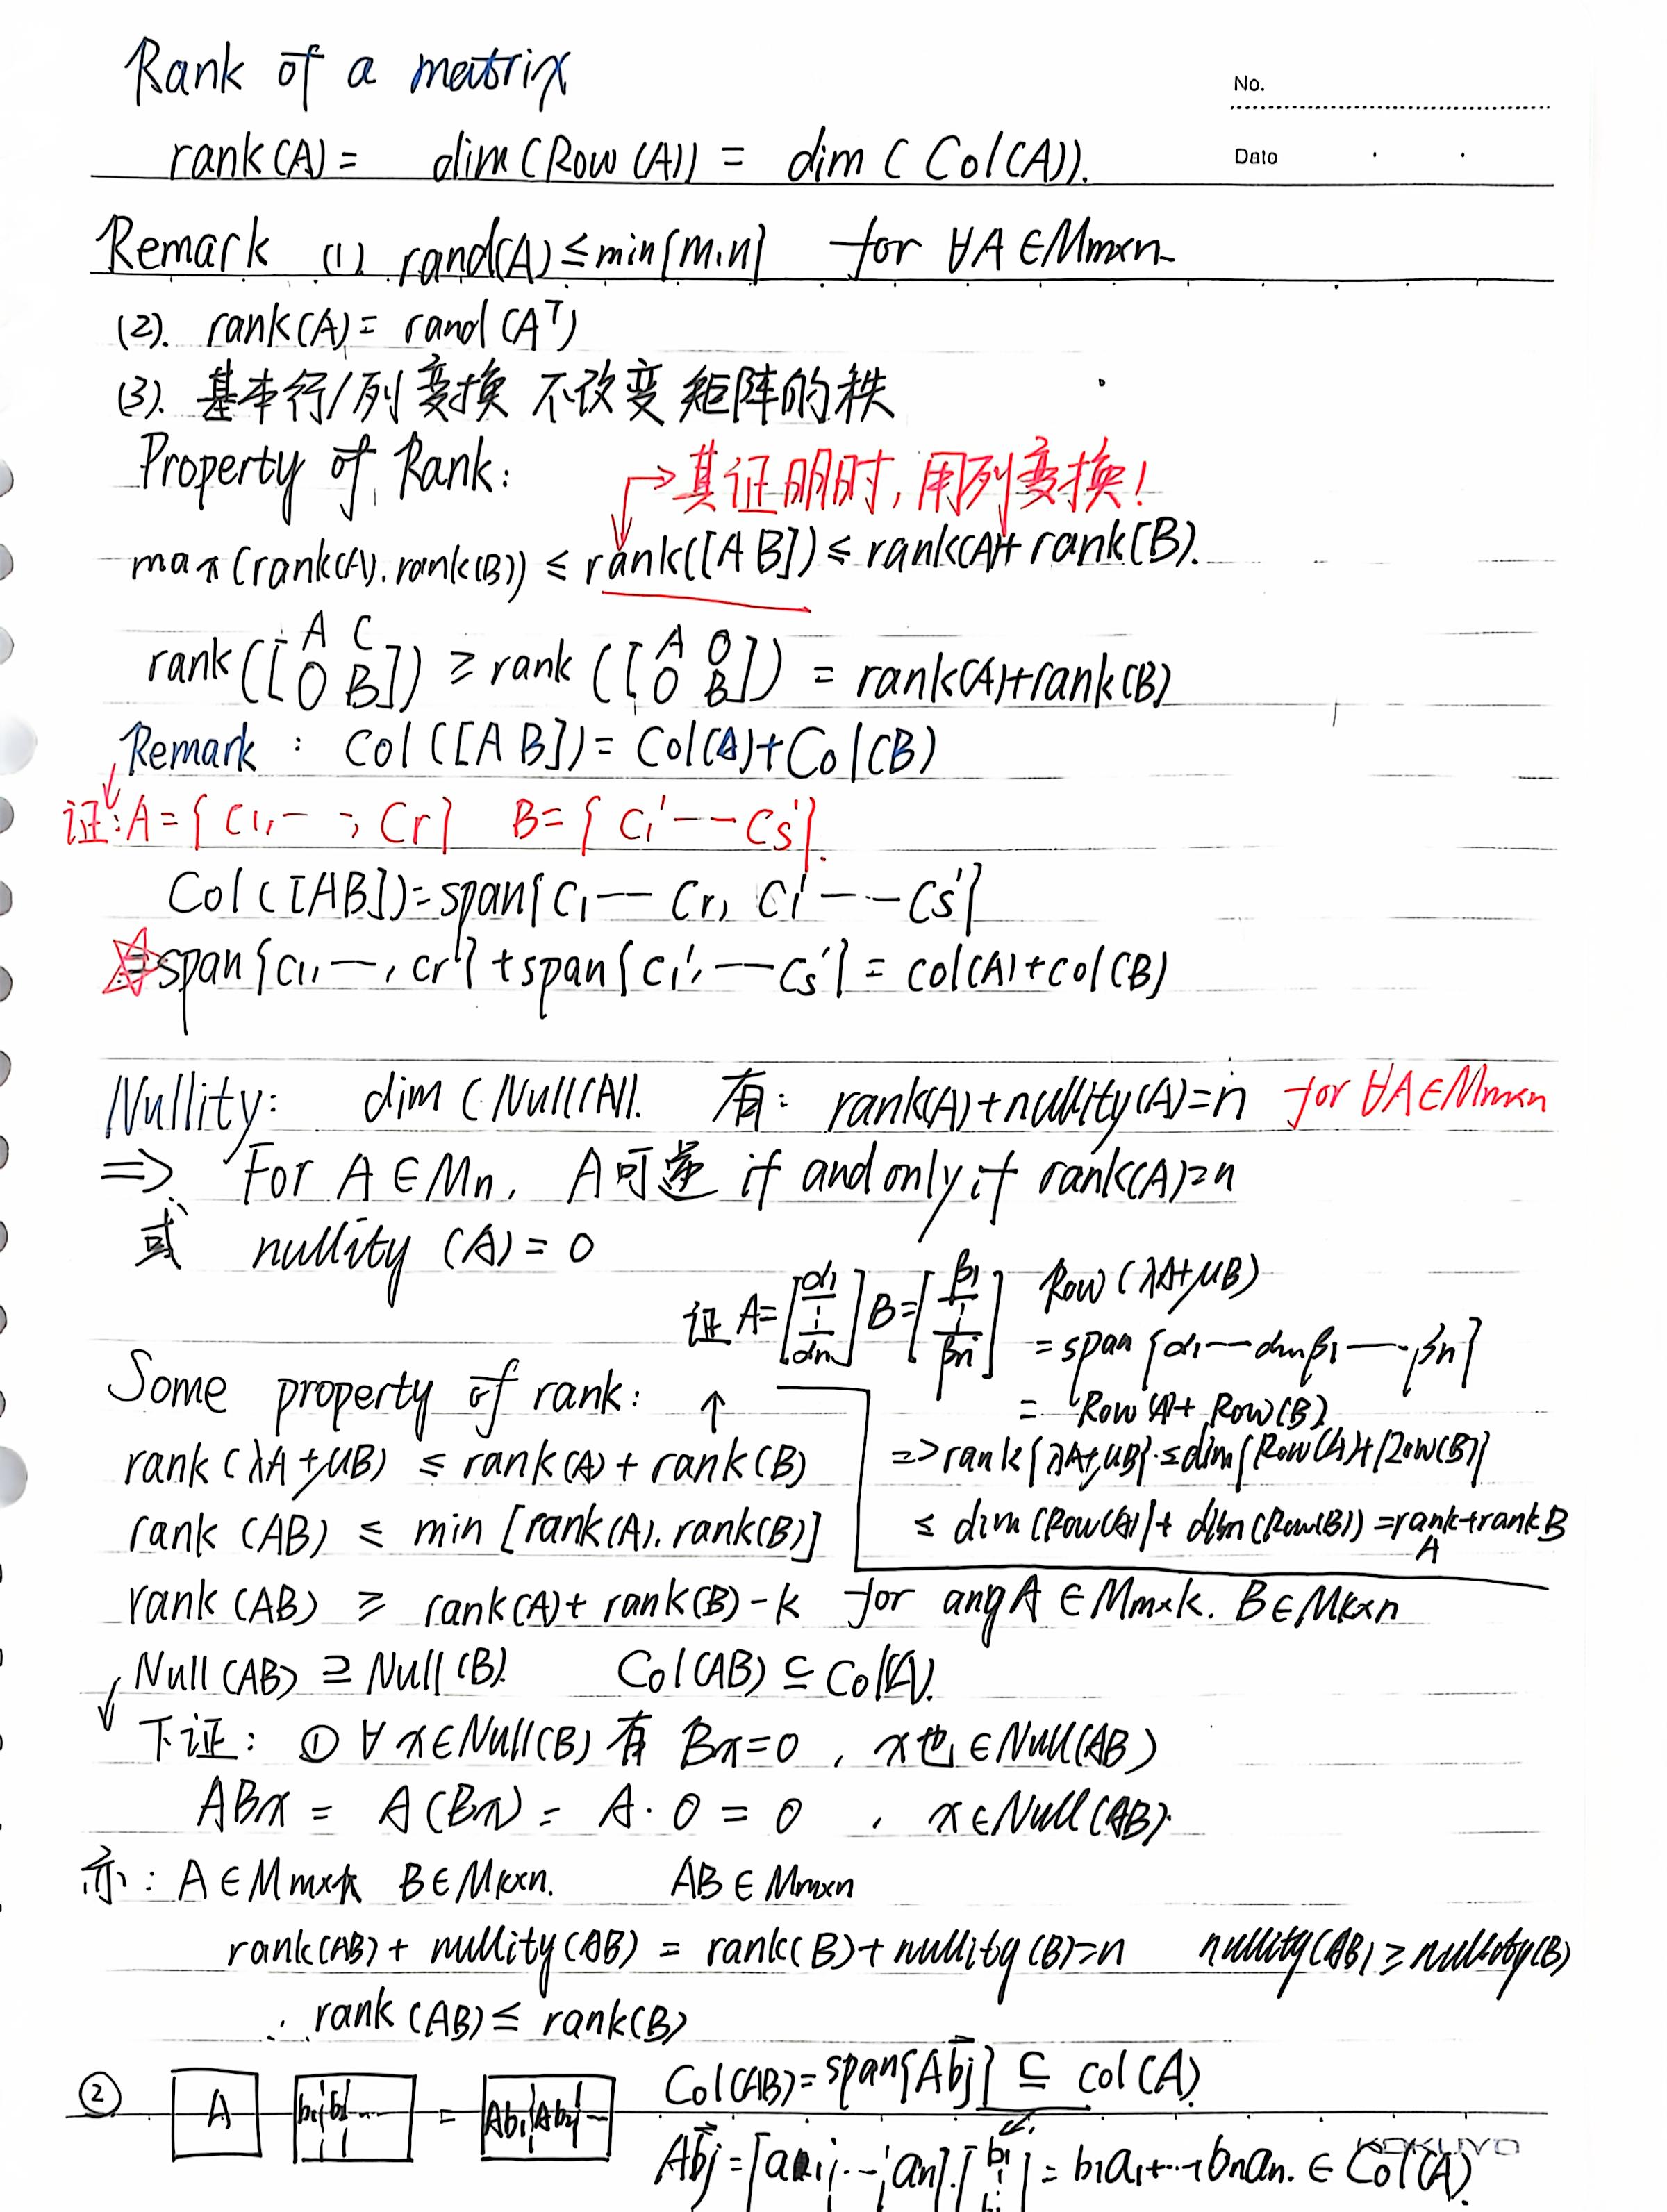 Rank of a matrix
No.
rank(A) = dim(Row(A)) = dim(Col(A)).
Date
Remark (1). rand(A) ≤ min{m,n} for ∀A∈Mm×n
(2). rank(A) = rand(A^T)
(3). 基本行/列变换 不改变 矩阵的秩
Property of Rank:
→其证明时,用列变换!
max(rank(A), rank(B)) ≤ rank([A B]) ≤ rank(A)+rank(B).
rank([A C
O B]) ≥ rank([A O
O B]) = rank(A)+rank(B)
Remark : Col([A B]) = Col(A)+Col(B)
证: A={C1,—, Cr} B={C1'——Cs'}.
Col([AB])=span{C1—Cr, C1'—--Cs'}
=span{C1,—,Cr} + span{C1',—Cs'} = col(A)+col(B)
Nullity: dim(Null(A)). 有: rank(A)+nullity(A)=n for ∀A∈Mm×n
=> For A∈Mn, A可逆 if and only if rank(A)=n
或 nullity(A)=0
证 A=[α1 ⋮ αn] B=[β1 ⋮ βn] Row(λA+μB)
= span{α1—αn,β1—-βn}
= Row(A)+Row(B)
=> rank{λA+μB} ≤ dim{Row(A)+Row(B)}
≤ dim(Row(A))+dim(Row(B)) = rankA+rankB
Some property of rank: ↑
rank(λA+μB) ≤ rank(A)+rank(B)
rank(AB) ≤ min[rank(A), rank(B)]
rank(AB) ≥ rank(A)+rank(B)-k for ang A∈Mm×k. B∈Mk×n
Null(AB) ⊇ Null(B). Col(AB) ⊆ Col(A).
下证: ① ∀x∈Null(B) 有 Bx=0 , x也∈Null(AB)
ABx = A(Bx) = A·0 = 0 , x∈Null(AB).
亦: A∈Mm×k B∈Mk×n. AB∈Mm×n
rank(AB)+nullity(AB) = rank(B)+nullity(B)=n nullity(AB) ≥ nullity(B)
∴ rank(AB) ≤ rank(B)
② A b1¦b2¦... = Ab1¦Ab2¦-- Col(AB)=span{Abj} ⊆ col(A)
Abj=[a1¦...¦an].[b1 ⋮ = b1a1+...+bnan. ∈ Col(A)
KOKUYO